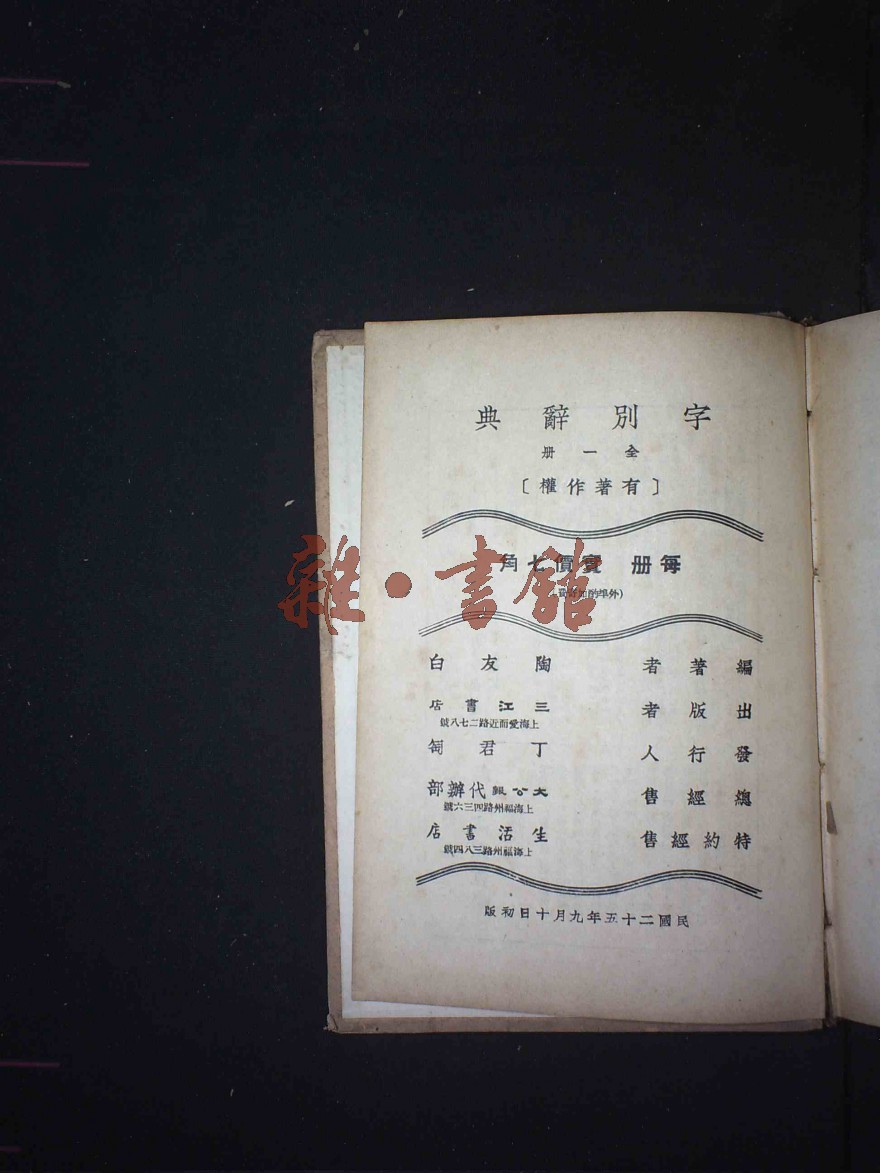 字別辭典
全一册
〔有著作權〕
每册 實價七角
(外埠酌加寄費)
編著者 陶友白
出版者 三江書店
上海愛而近路二七八號
發行人 丁君匋
總經售 大公報代辦部
上海福州路四三六號
特約經售 生活書店
上海福州路三八四號
民國二十五年九月十日初版
雜·書館